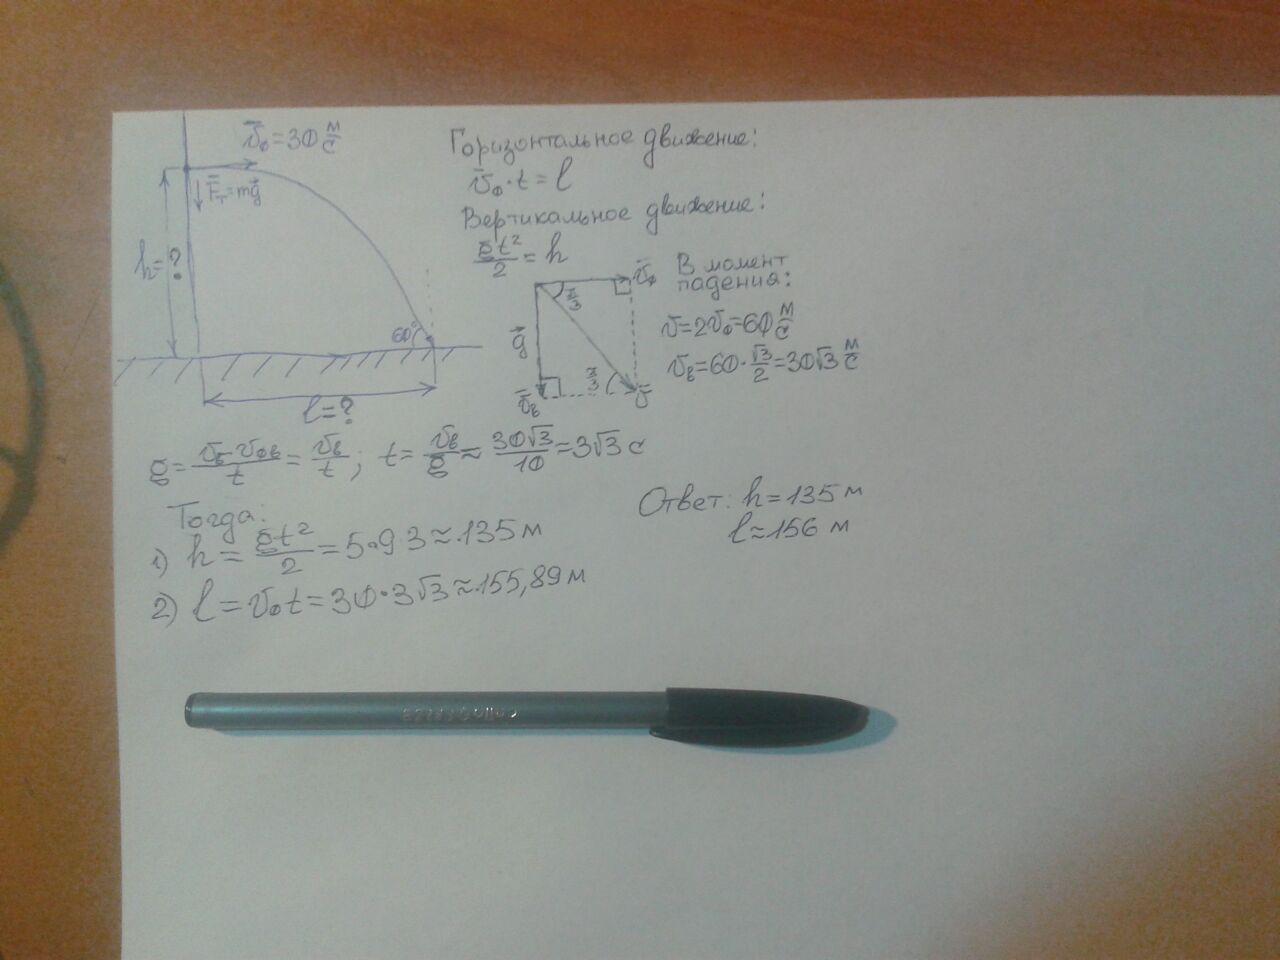 v̄₀=30 м/с
F̄т=mḡ
h=?
60°
l=?
Горизонтальное движение:
v̄₀·t=l
Вертикальное движение:
gt²/2=h
v̄₀
π/3
g⃗
π/3
v̄в
v̄
В момент
падения:
v=2v₀=60 м/с
vв=60·√3/2=30√3 м/с
g=(vв-v₀в)/t=vв/t; t=vв/g≈30√3/10=3√3 с
Тогда:
1) h=gt²/2=5·9·3≈135 м
2) l=v₀t=30·3√3≈155,89 м
Ответ: h=135 м
l≈156 м